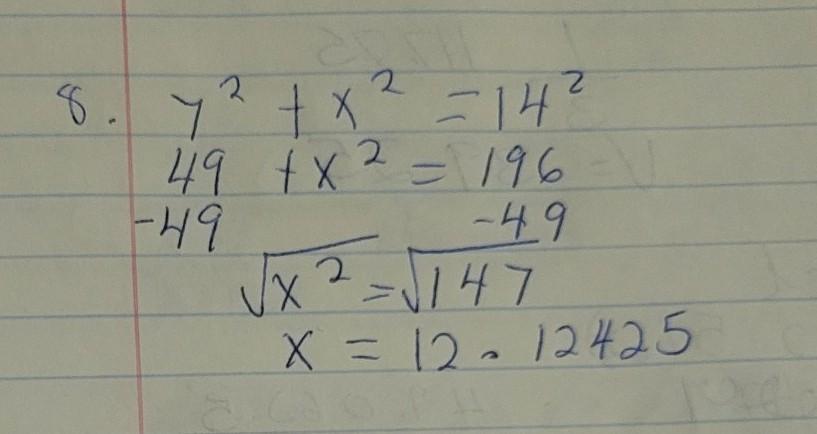 8. y² + x² = 14²
49 + x² = 196
-49 -49
√x² = √147
x = 12.12425